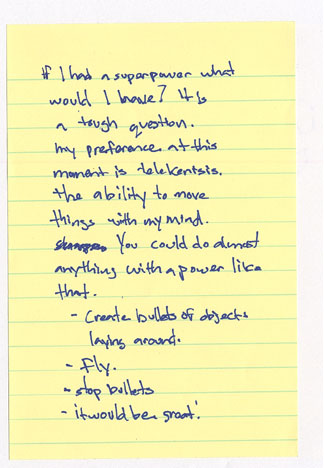 If I had a superpower what
would I have? It is
a tough question.
my preference at this
moment is telekentsis.
the ability to move
things with my mind.
You could do almost
anything with a power like
that.
- Create bullets of objects
laying around.
- Fly.
- stop bullets
- it would be great!